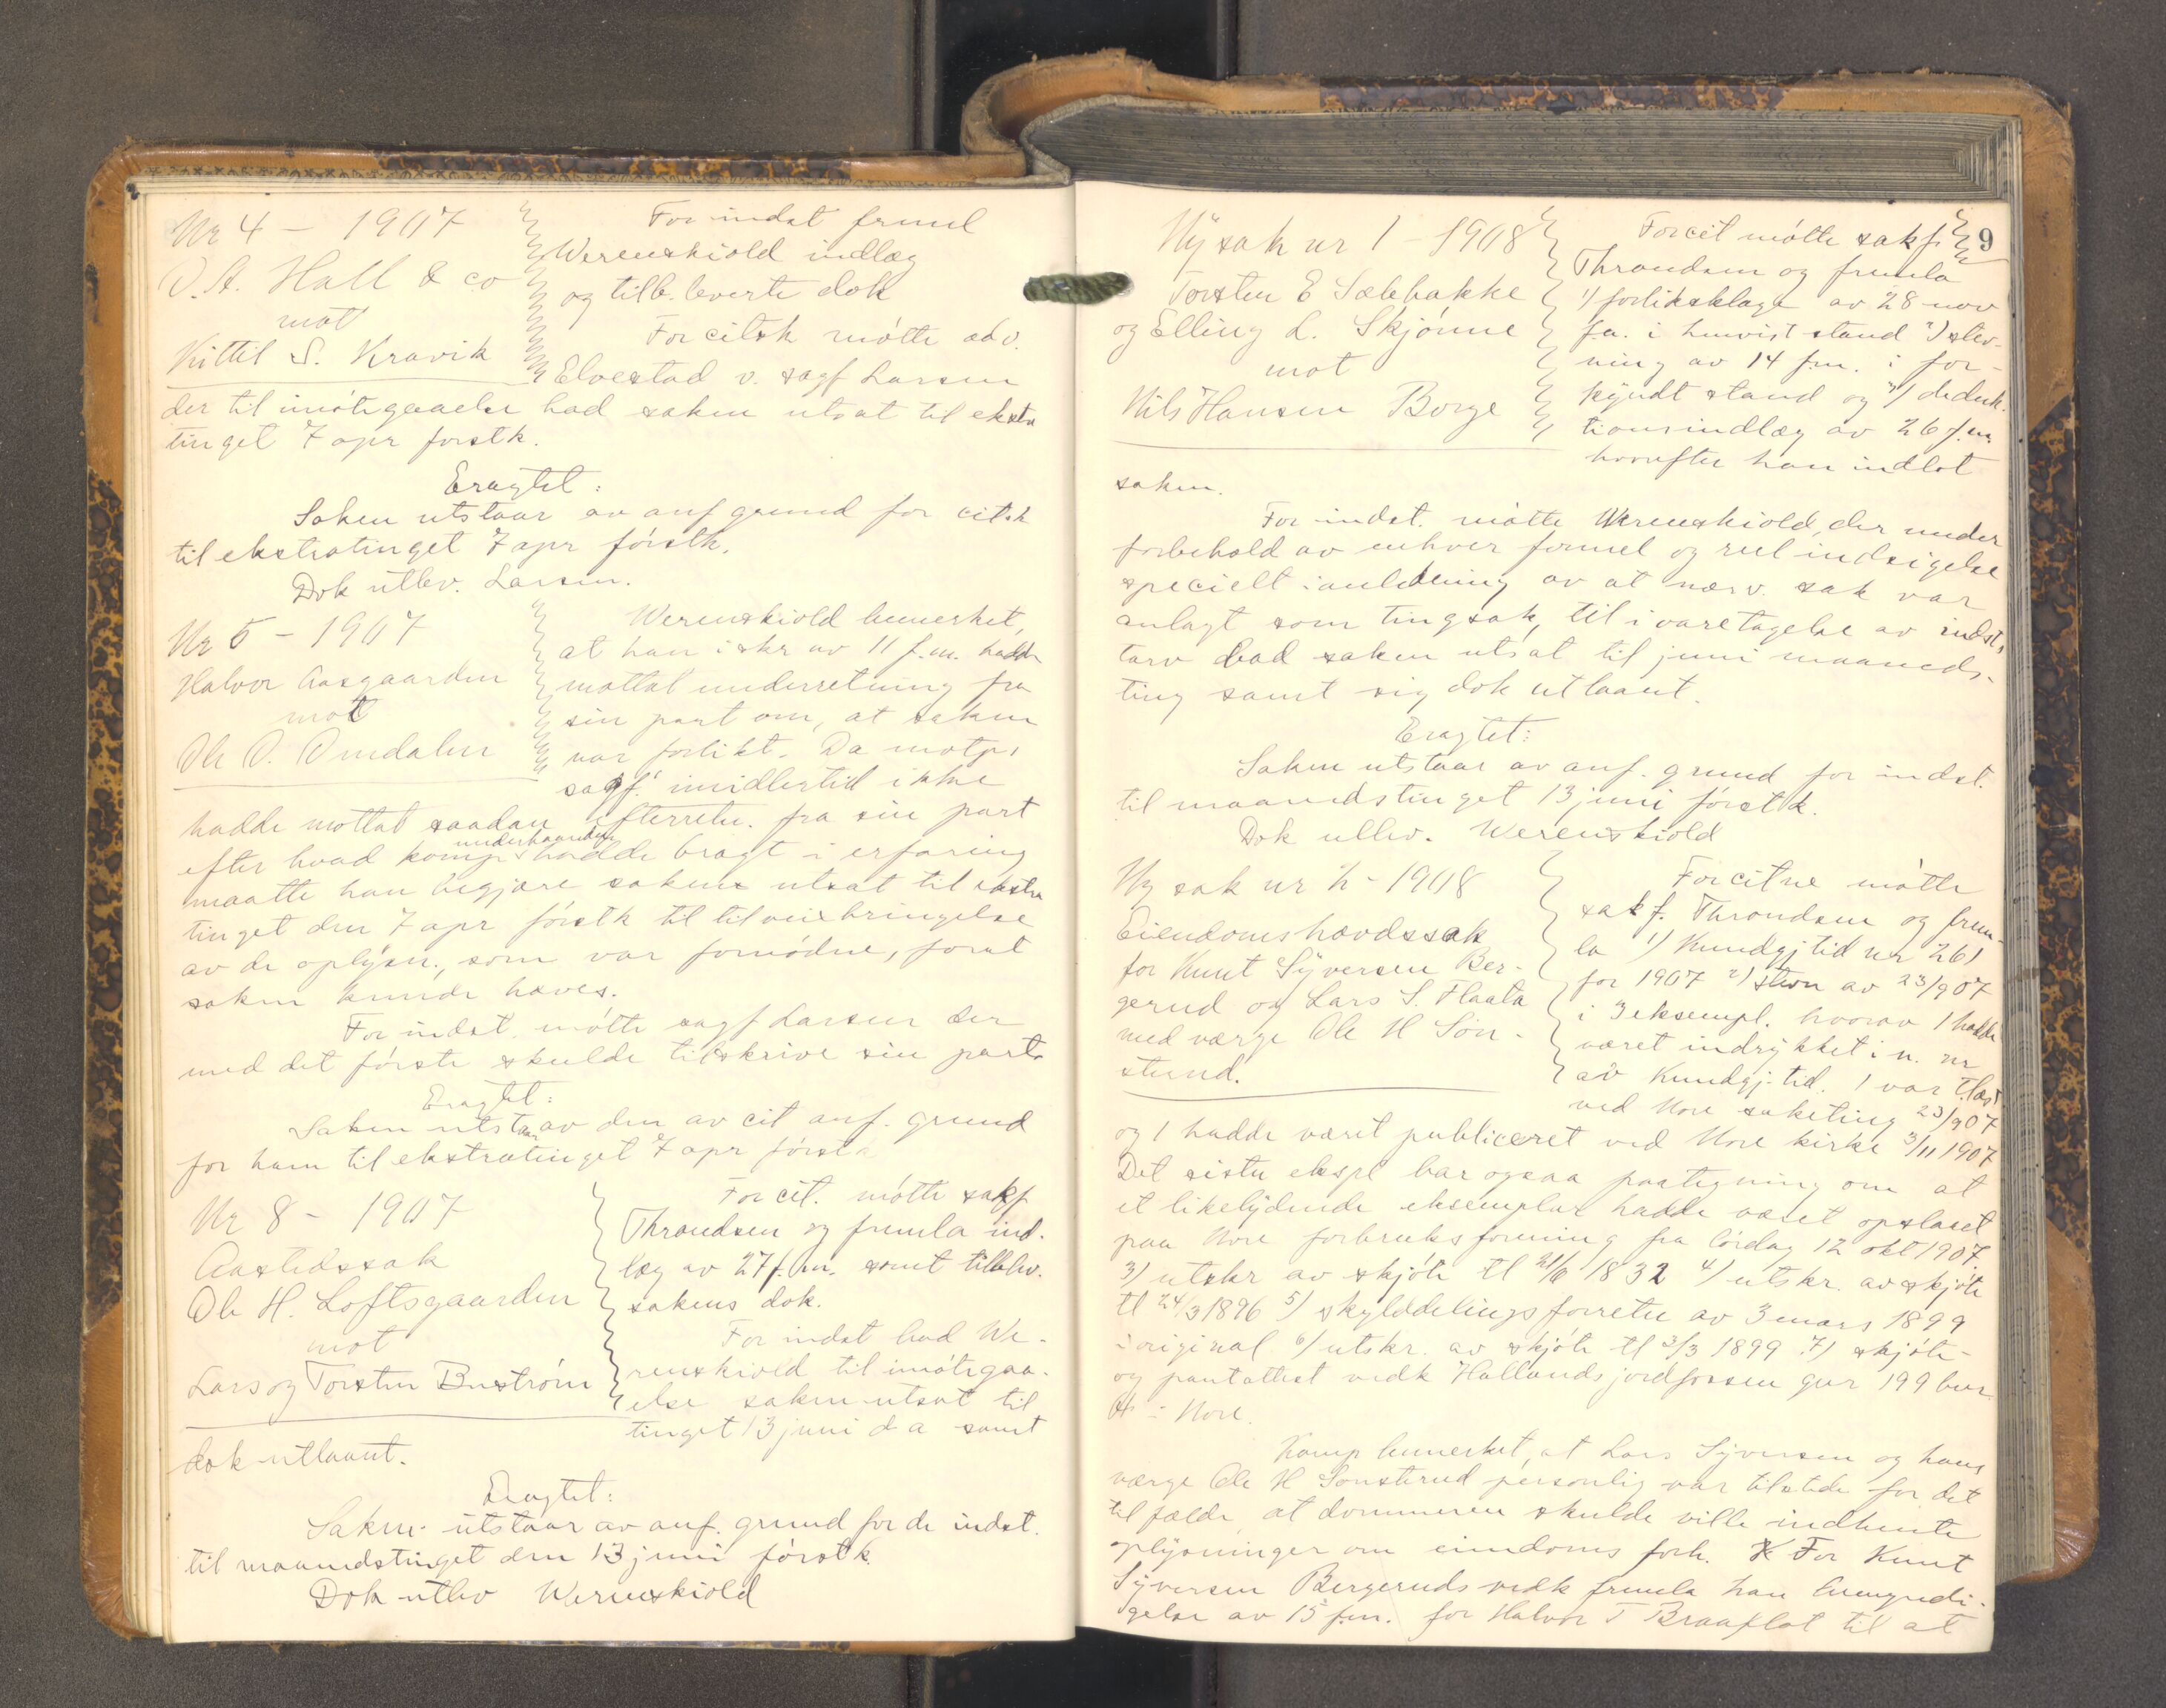 Nr 4 - 1907
O. A. Hall & co
mot
Kittil S. Kravik
For indst freml
Werenskiold indlæg
og tilb. leverte dok
For citsk møtte adv.
Elvestad v. sagf Larsen
der til imøtegaaelse bad saken utsat til ekstra
tinget 7 apr førstk.
Eragtet:
Saken utstaar av anf grund for citsk
til ekstratinget 7 apr førstk.
Dok utlev. Larsen.
Nr 5 - 1907
Halvor Aasgaarden
mot
Ole O. Omdalen
Werenskiold bemerket,
at han i skr av 11 f.m. hadde
mottat underretning fra
sin part om, at saken
var forlikt. Da motp.s
sagf. imidlertid ikke
hadde mottat saadan efterretn. fra sin part
efter hvad komp underhaanden hadde bragt i erfaring
maatte han begjære saken utsat til ekstra
tinget den 7 apr førstk til tilveiebringelse
av de oplysn., som var fornødne, forat
saken kunde hæves.
For indst. møtte sagf Larsen der
med det første skulde tilskrive sin part.
Eragtet:
Saken utstaar av den av cit anf. grund
for ham til ekstratinget 7 apr førstk
Nr 8 - 1907
Aastedssak
Ole H. Loftsgaarden
mot
Lars og Torsten Buström
For cit. møtte sakf
Throndsen og fremla ind-
læg av 27 f.m. samt tilblev.
sakens dok.
For indst bad We-
renskiold til imøtegaa-
else saken utsat til
tinget 13 juni d a samt
dok utlaant.
Eragtet:
Saken utstaar av anf. grund for de indst.
til maanedstinget den 13 juni førstk.
Dok utlev Werenskiold
9
Ny sak nr 1 - 1908
Torsten E Sæbbakke
og Elling L. Skjönne
mot
Nils Hansen Borge
For cit møtte sakf.
Throndsen og fremla
1) forliksklage av 28 nov
f.a. i henvist stand 2) stev-
ning av 14 f.m. i for-
kyndt stand og 3) deduk-
tionsindlæg av 26 f.m.
hvorefter han indlot
saken.
For indst. møtte Werenskiold, der under
forbehold av enhver formel og reel indsigelse
specielt i anledning av at nærv. sak var
anlagt som tingsak, til ivaretagelse av indst.s
tarv bad saken utsat til juni maaneds-
ting samt sig dok utlaant.
Eragtet:
Saken utstaar av anf. grund for indst.
til maanedstinget 13 juni førstk.
Dok utlev. Werenskiold
Ny sak nr 2 - 1908
Eiendomshævdssak
for Knut Syversen Ber-
gerud og Lars S. Flaata
med værge Ole H Søn-
sterud.
For citne møtte
sakf. Throndsen og frem-
la 1) Kundgj tid nr 261
for 1907 2) stevn av 23/9 07
i 3 eksempl. hvorav 1 hadde
været indrykket i n. nr
av Kundgj. tid. 1 var t.læst
ved Nore saketing 23/9 07
og 1 hadde været publiceret ved Nore kirke 3/11 1907
Det siste ekspl bar ogsaa paategning om at
et likelydende eksemplar hadde været opslaaet
paa Nore forbruksforening fra lørdag 12 okt 1907.
3) utskr av skjøte tl 21/6 1832 4) utskr. av skjøte
tl 24/3 1896 5) skylddelingsforretn av 3 mars 1899
i original 6) utskr. av skjøte tl 3/3 1899 7) skjøte-
og pantattest vedk Hallandsjordfossen gnr 199 bnr
4 i Nore.
Komp bemerket, at Lars Syversen og hans
værge Ole H Sønsterud personlig var tilstede for det
tilfælde, at dommeren skulde ville indhente
oplysninger om eiendoms forh. For Knut
Syversen Bergeruds vedk fremla han bemyndi-
gelse av 15 f.m. for Halvor T Braaflat til at